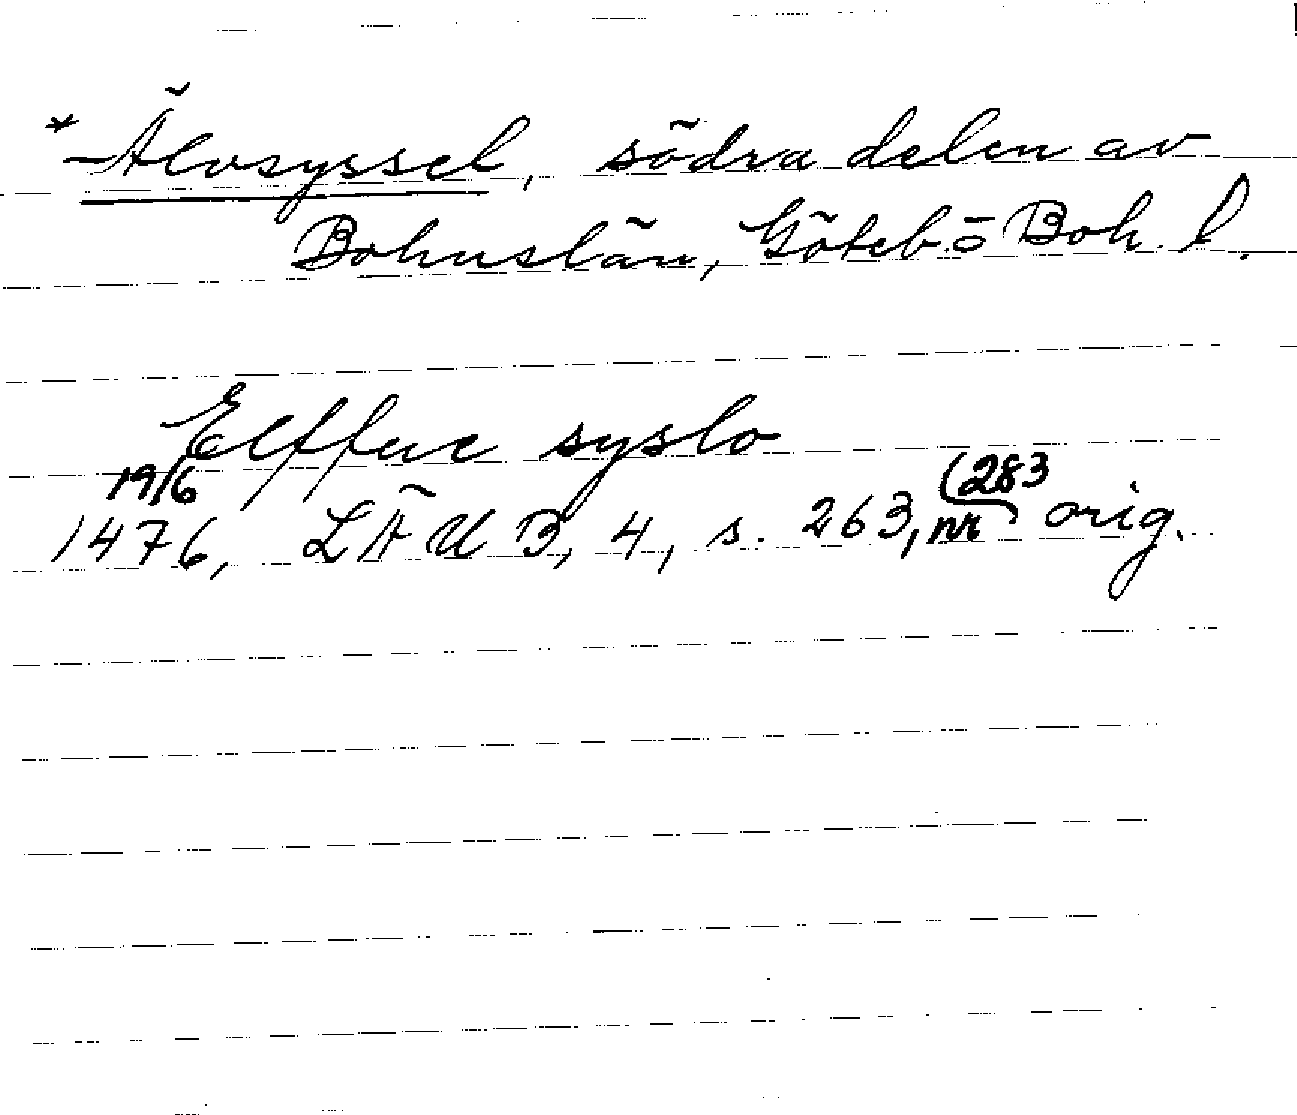 * Älvsyssel, södra delen av
Bohuslän, Göteb. o Boh. l.
Elffue syslo
19/6
1476, LÄUB, 4, s. 263, nr (283 orig.